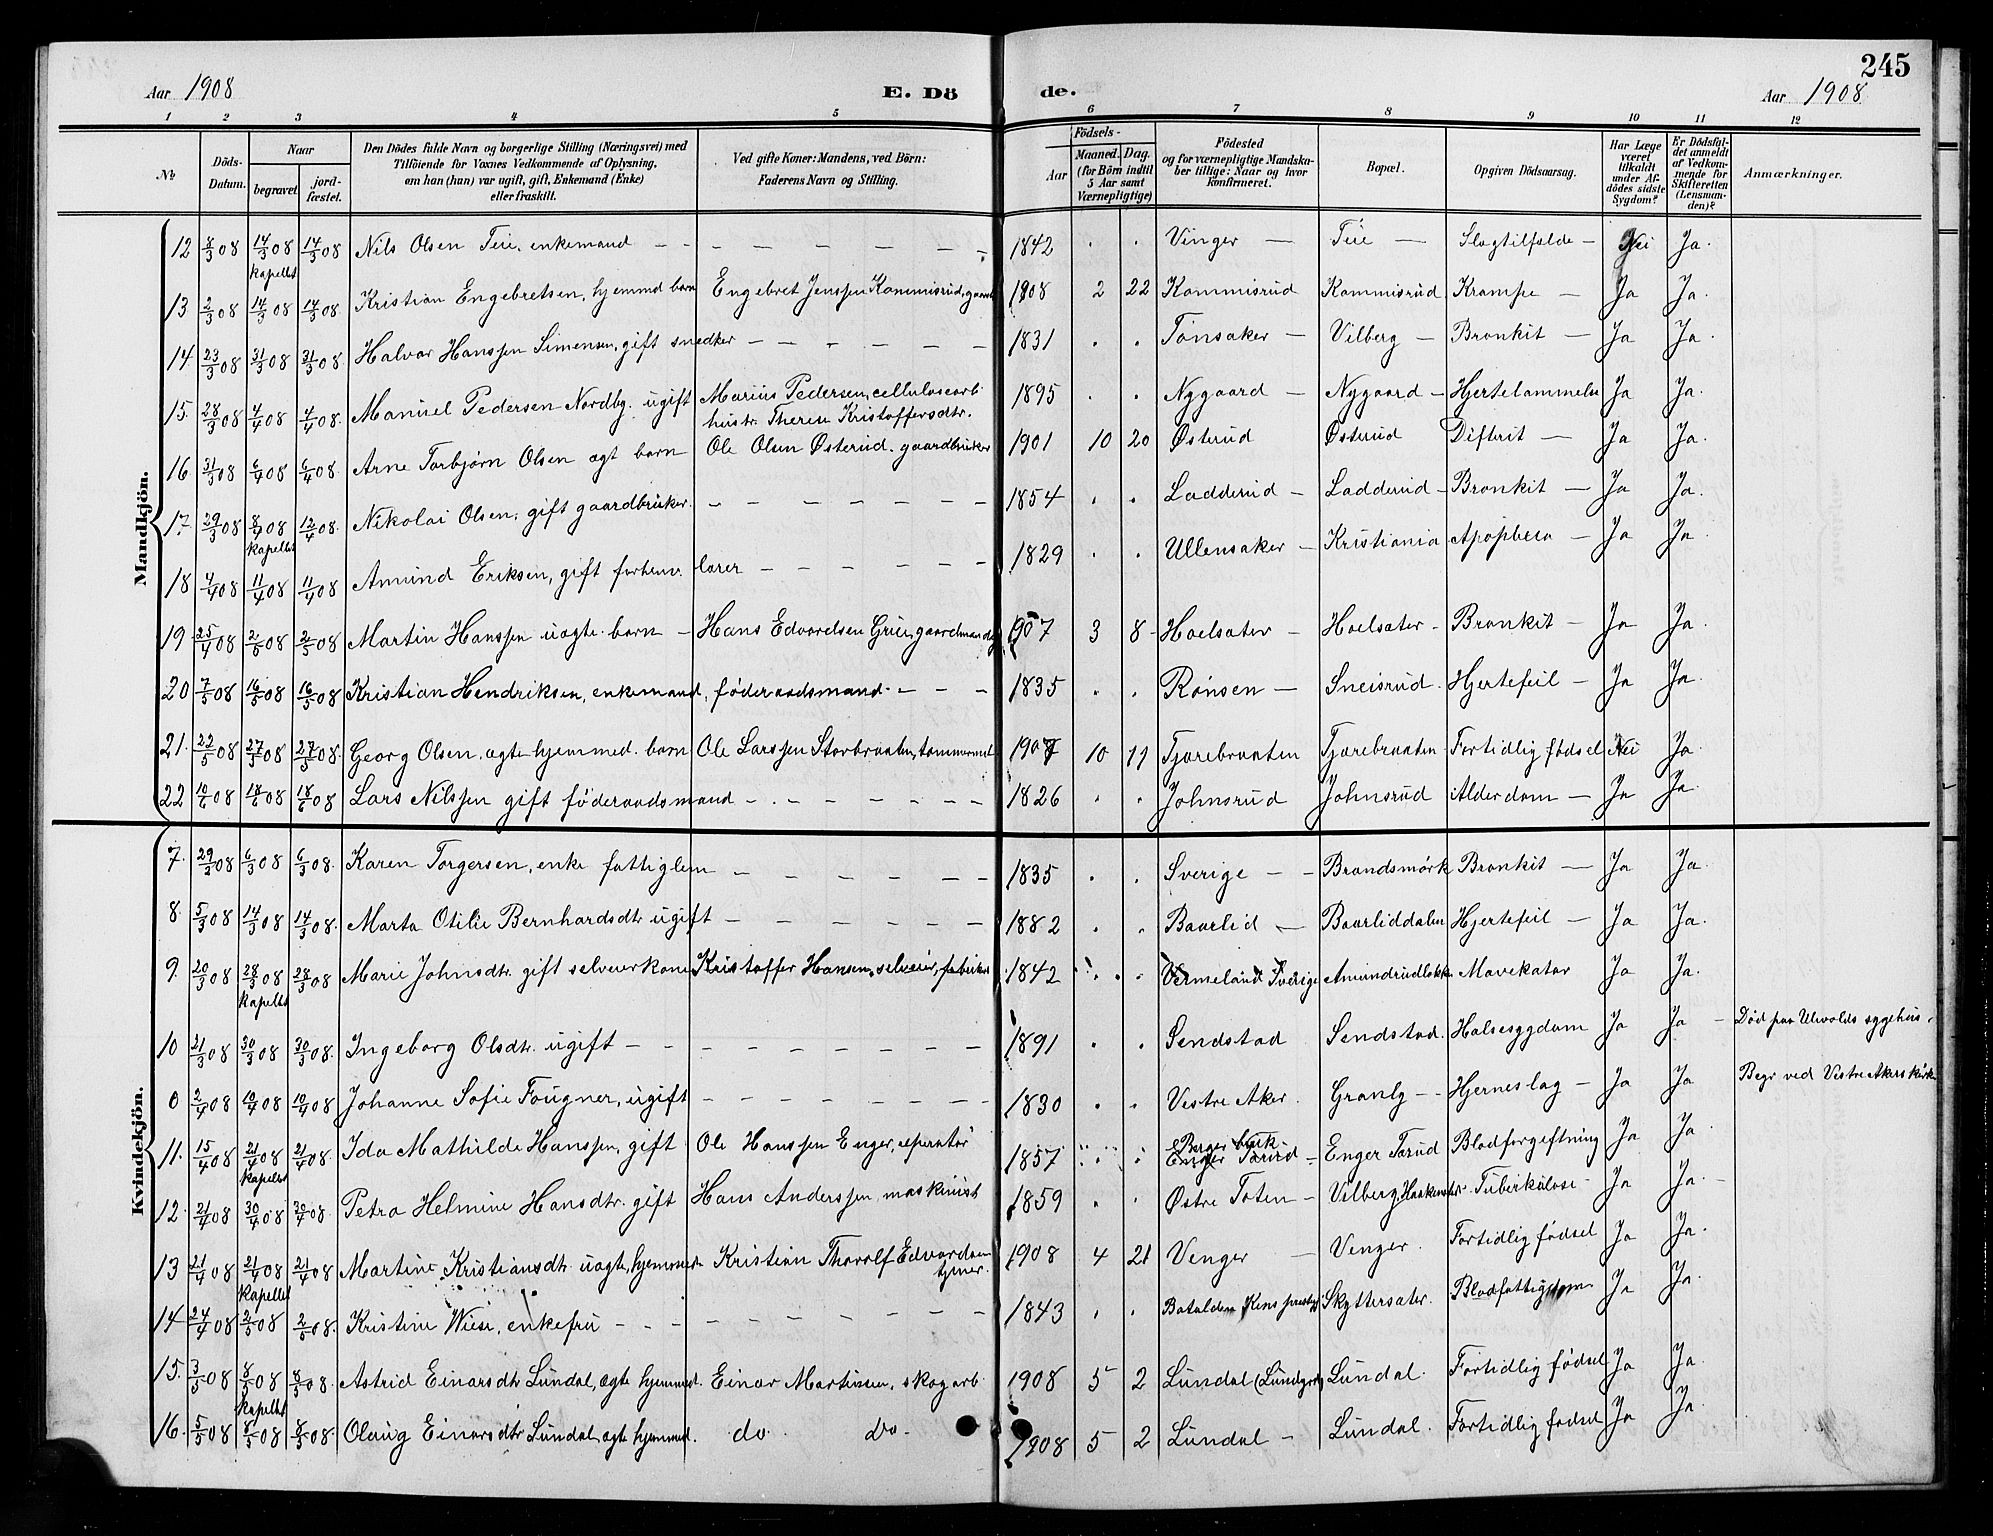 245
Aar 1908 E. Dö de. Aar 1908
1 2 3 4 5 6 7 8 9 10 11 12
№ Döds-Datum. Naar begravet. jord-fæstet. Den Dödes fulde Navn og borgerlige Stilling (Næringsvei) med Tilföiende for Voxnes Vedkommende af Oplysning, om han (hun) var ugift, gift, Enkemand (Enke) eller fraskilt. Ved gifte Koner: Mandens, ved Börn: Faderens Navn og Stilling. Födsels- Aar Maaned. Dag. (for Börn indtil 5 Aar samt Værnepligtige) Födested og for værnepligtige Mandskaber tillige: Naar og hvor konfirmeret. Bopæl. Opgiven Dödsaarsag. Har Læge været tilkaldt under Afdödes sidste Sygdom? Er Dödsfaldet anmeldt af Vedkommende for Skifteretten (Lensmanden)? Anmærkninger.
Mandkjön.
12 8/3 08 14/3 08 kapellet 14/3 08 Nils Olsen Teie, enkemand — 1842 . . Vinger — Teie — Slagtilfælde — Nei Ja.
13 2/3 08 14/3 08 14/3 08 Kristian Engebretsen, hjemmd barn Engebret Jenssen Kommisrud, 1908 2 22 Kommisrud Kommisrud Krampe — Ja Ja.
14 23/3 08 31/3 08 31/3 08 Halvor Hanssen Simensen, gift snedker — 1831 . . Tønsaker — Vilberg — Bronkit — Ja Ja.
15. 28/3 08 4/4 08 4/4 08. Manuel Pedersen Nordby. ugift Marius Pedersen, cellulosearb hustr. Therese Kristoffersdtr. 1895 . . Nygaard — Nygaard — Hjertelammelse Ja Ja.
16 31/3 08 6/4 08 6/4 08. Arne Torbjørn Olsen ægt barn Ole Olsen Østerud. gaardbruker 1901 10 20 Østerud Østerud Difterit — Ja Ja.
17. 29/3 08 8/4 08 kapellet 12/4 08. Nikolai Olsen, gift gaardbruker. — 1854 . . Ladderud — Ladderud — Bronkit — Ja Ja.
18 4/4 08 11/4 08 11/4 08 Amund Eriksen, gift forhenv. lærer — 1829 . . Ullensaker — Kristiania Apoplexia — Ja Ja
19 25/4 08 2/5 08 2/5 08 Martin Hanssen uægte. barn — Hans Edvardsen Grue, 1907 3 8 — Hoelsæter — Hoelsæter — Bronkit — Ja Ja.
20 7/5 08 16/5 08 16/5 08 Kristian Hendriksen, enkemand, føderaadsmand — 1835 . . Rønsen — Sneisrud. Hjertefeil — Ja Ja.
21. 22/5 08 27/5 08 27/5 08. Georg Olsen, ægte hjemmed. barn Ole Larssen Storbraaten, tømmermd 1907 10 11 Tjærebraaten Tjærebraaten Fortidlig fødsel Nei Ja.
22 10/6 08 18/6 08 18/6 08 Lars Nilssen gift føderaadsmand — 1826 . . Johnsrud Johnsrud Alderdom — Ja Ja.
Kvindekjön.
7. 29/2 08 6/3 08 6/3 08. Karen Torgersen, enke fattiglem — 1835 . . Sverige — Brandsmørk Bronkit — Ja Ja.
8. 5/3 08 14/3 08 14/3 08. Marta Otilie Bernhardsdtr ugift — 1882 . . Baarlid — Baarliddalen Hjertefeil — Ja Ja.
9. 20/3 08 28/3 08 kapellet 28/3 08 Marie Johnsdtr. gift selveierkone Kristoffer Hansen, selveier, 1842 . . Vermeland Sverige Amundrudløkk. Mavekatar Ja Ja.
10 21/3 08 30/3 08 30/3 08. Ingeborg Olsdtr. ugift — 1891 . . Sendstad Sendstad. Halsesygdom Ja Ja — Død paa Ulvolds sygehus.
0 2/4 08 10/4 08 10/4 08. Johanne Sofie Fougner, ugift — 1830 . . Vestre Aker. Granly — Hjerneslag — Ja Ja Begr ved Vestre Akers kirk
11. 15/4 08 21/4 08 kapellet 21/4 08. Ida Mathilde Hanssen, gift Ole Hanssen Enger, reparatør 1857 . . Berger bruk Enger Tørud — Enger Torud Blodforgiftning Ja Ja.
12. 21/4 08 30/4 08 30/4 08. Petra Helmine Hansdtr. gift Hans Anderssen, maskinist 1859 . . Østre Toten — Vilberg, Tuberkulose — Ja Ja. —
13 21/4 08 21/4 08 kapellet 21/4 08 Martine Kristiansdtr uægte, hjemmed. Kristian Thoralf Edvardsen tjener. 1908 4 21 Venger — Venger. Fortidlig fødsel Ja Ja.
14 24/4 08 2/5 08 2/5 08. Kristine Wiese, enkefru — 1843 . . Batalden Kins prestegj Skyttersæter. Blodfattigdom Ja Ja.
15. 3/5 08 8/5 08 kapellet 8/5 08. Astrid Einarsdtr Lundal, ægte hjemmed. Einar Martinsen, skogarb. 1908 5 2 Lundal Lundal. Fortidlig fødsel Ja Ja.
16. 5/5 08 8/5 08 8/5 08. Olaug Einarsdtr Lundal, ægte hjemmed. do. do. 1908 5 2 Lundal — Lundal. Fortidlig fødsel Ja Ja.